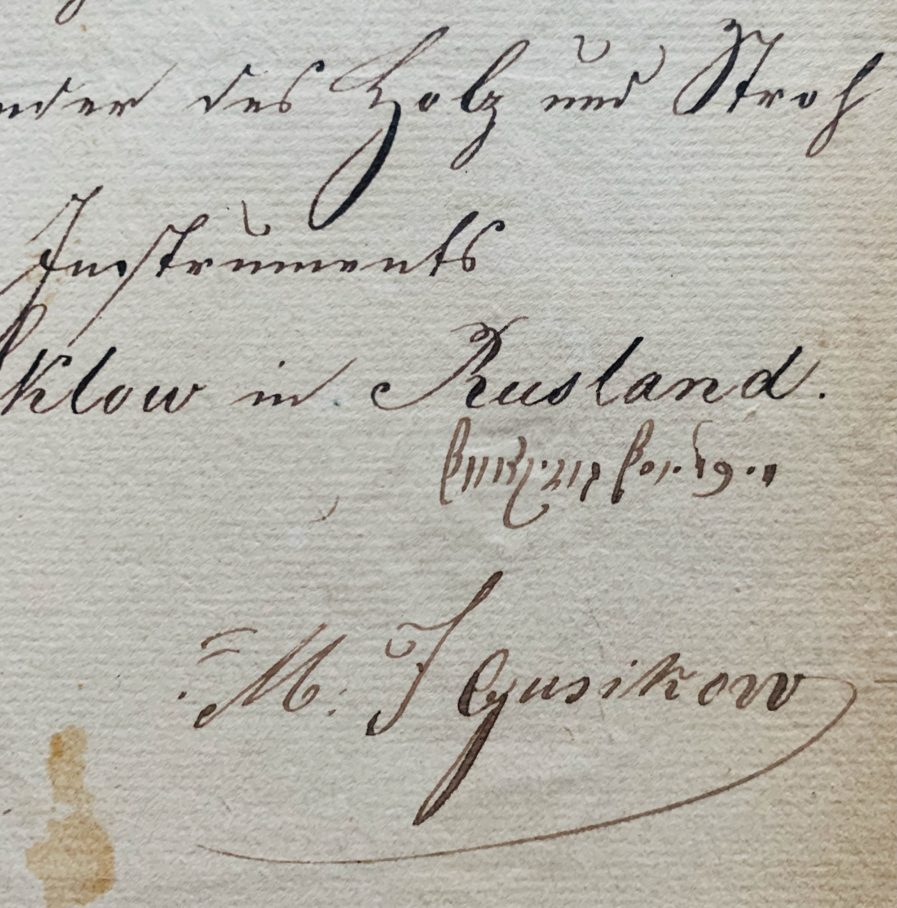 des Holz und Stroh
Instruments
klow in Rusland.
M: J Gusikow